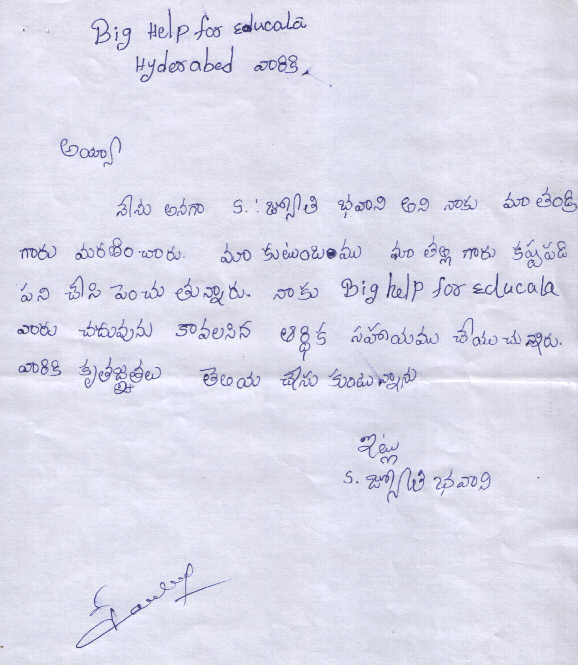 Big Help for Educala
Hyderabed వారికి.
అయ్యా
నేను అనగా S. జ్యోతి భవాని అని నాకు మా తండ్రి
గారు మరణించారు. మా కుటుంబము మా తల్లి గారు కష్టపడి
పని చేసి పెంచు తున్నారు. నాకు Big help for educala
వారు చదువును కావలసిన ఆర్థిక సహాయము చేయు చున్నారు.
వారికి కృతజ్ఞతలు తెలియ చేసు కుంటున్నాను
ఇట్లు
S. జ్యోతి భవాని